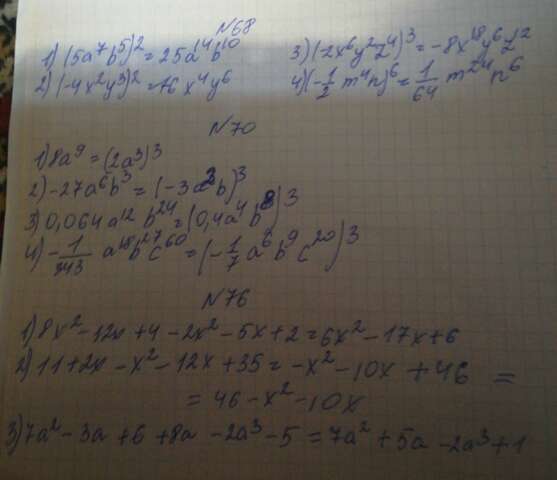 №68
1) (5a⁷b⁵)² = 25a¹⁴b¹⁰ 3) (-2x⁶y²z⁴)³ = -8x¹⁸y⁶z¹²
2) (-4x²y³)² = 16x⁴y⁶ 4) (-1/2 m⁴n)⁶ = 1/64 m²⁴n⁶
№70
1) 8a⁹ = (2a³)³
2) -27a⁶b³ = (-3a²b)³
3) 0,064a¹² b²⁴ = (0,4a⁴b⁸)³
4) -1/343 a¹⁸b²⁷c⁶⁰ = (-1/7 a⁶b⁹c²⁰)³
№76
1) 8x² - 12x + 4 - 2x² - 5x + 2 = 6x² - 17x + 6
2) 11 + 2x - x² - 12x + 35 = -x² - 10x + 46 =
= 46 - x² - 10x
3) 7a² - 3a + 6 + 8a - 2a³ - 5 = 7a² + 5a - 2a³ + 1